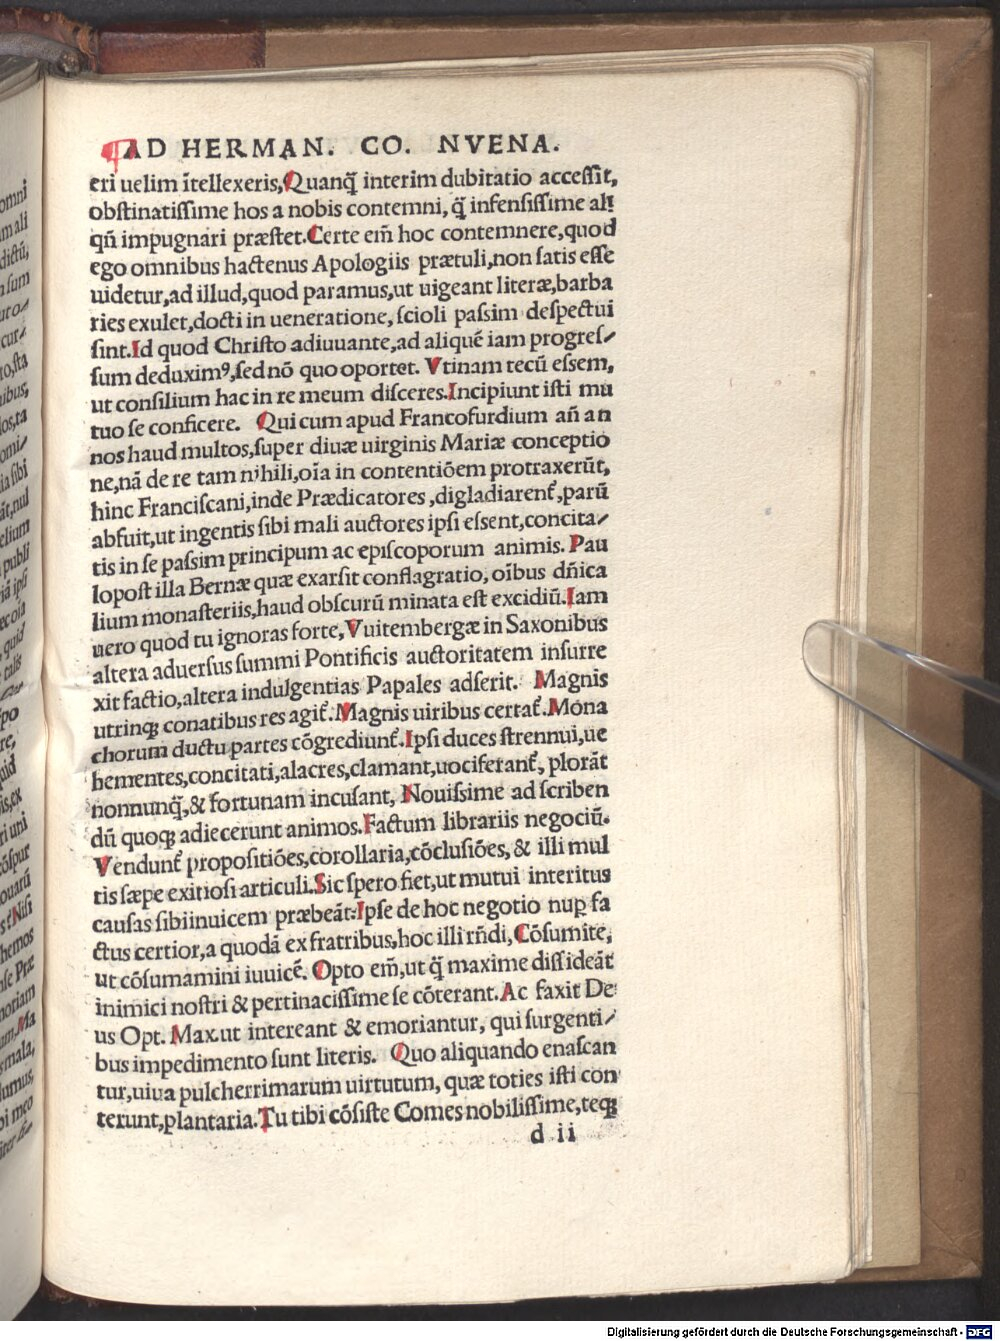 AD HERMAN. CO. NVENA.
eri uelim ītellexeris, Quanq̄ interim dubitatio accessit,
obstinatissime hos a nobis contemni, q̄ infensissime ali
qn̄ impugnari præstet. Certe em̄ hoc contemnere, quod
ego omnibus hactenus Apologiis prætuli, non satis esse
uidetur, ad illud, quod paramus, ut uigeant literæ, barba
ries exulet, docti in ueneratione, scioli passim despectui
sint. Id quod Christo adiuuante, ad aliquē iam progres/
sum deduximꝰ, sed nō quo oportet. Vtinam tecū essem,
ut consilium hac in re meum disceres. Incipiunt isti mu
tuo se conficere. Qui cum apud Francofurdium an̄ an
nos haud multos, super diuæ uirginis Mariæ conceptio
ne, nā de re tam nihili, oīa in contentiōem protraxerūt,
hinc Franciscani, inde Prædicatores, digladiarent᷑, parū
abfuit, ut ingentis sibi mali auctores ipsi essent, concita/
tis in se passim principum ac episcoporum animis. Pau
lopost illa Bernæ quæ exarsit conflagratio, oībus dn̄ica
lium monasteriis, haud obscurū minata est excidiū. Iam
uero quod tu ignoras forte, Vuitembergæ in Saxonibus
altera aduersus summi Pontificis auctoritatem insurre
xit factio, altera indulgentias Papales adserit. Magnis
utrinqꝫ conatibus res agit᷑. Magnis uiribus certat᷑. Mona
chorum ductu partes cōgrediunt᷑. Ipsi duces strennui, ue
hementes, concitati, alacres, clamant, uociferant᷑, plorāt
nonnunq̄, & fortunam incusant, Nouissime ad scriben
dū quoqꝫ adiecerunt animos. Factum librariis negociū.
Vendunt᷑ propositiōes, corollaria, cōclusiōes, & illi mul
tis sæpe exitiosi articuli. Sic spero fiet, ut mutui interitus
causas sibiinuicem præbeāt: Ipse de hoc negotio nuꝑ fa
ctus certior, a quodā ex fratribus, hoc illi rn̄di, Cōsumite,
ut cōsumamini iuuicē. Opto em̄, ut q̄ maxime dissideāt
inimici nostri & pertinacissime se cōterant. Ac faxit De
us Opt. Max. ut intereant & emoriantur, qui surgenti/
bus impedimento sunt literis. Quo aliquando enascan
tur, uiua pulcherrimarum uirtutum, quæ toties isti con
terunt, plantaria. Tu tibi cōsiste Comes nobilissime, teqꝫ
d ii
Digitalisierung gefördert durch die Deutsche Forschungsgemeinschaft - DFG